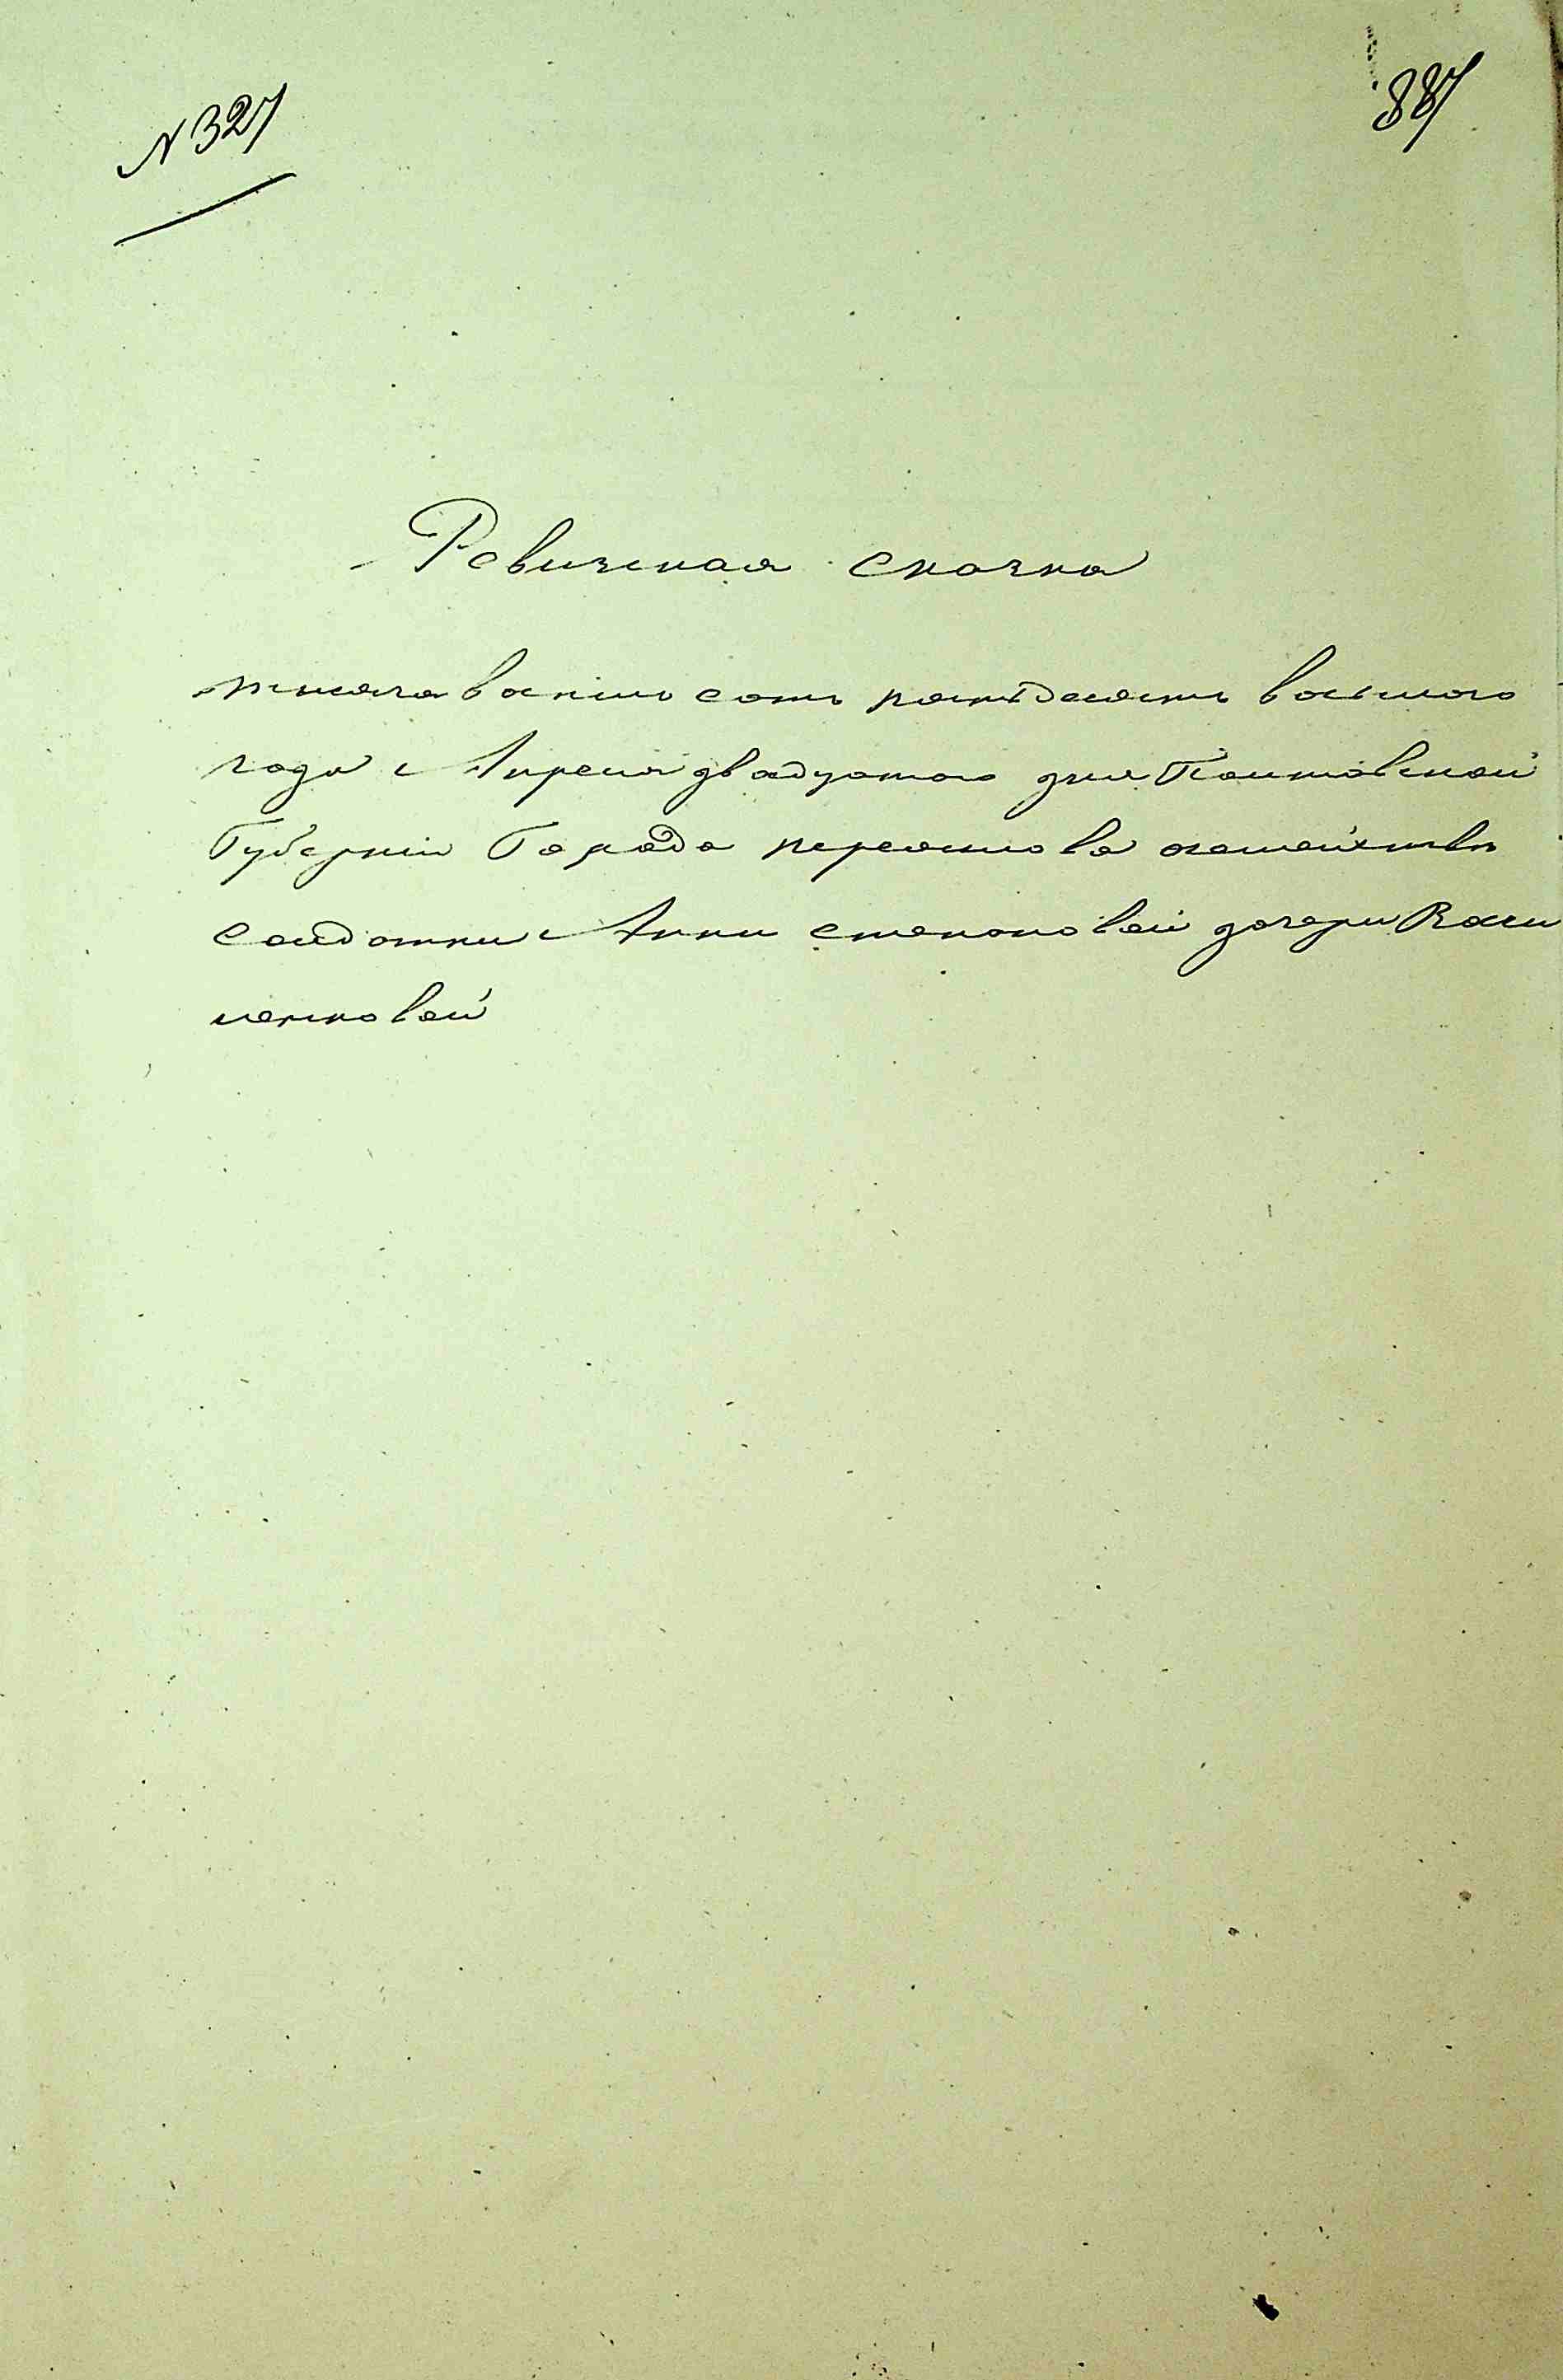 N 327
887
Ревизская сказка
тысяча восемь сотъ пятьдесятъ восьмого
года Апреля двадцатого дня Полтавской
Губерніи Города Переяслова
солдатки Анны Степановой дочери Васи
ленковой